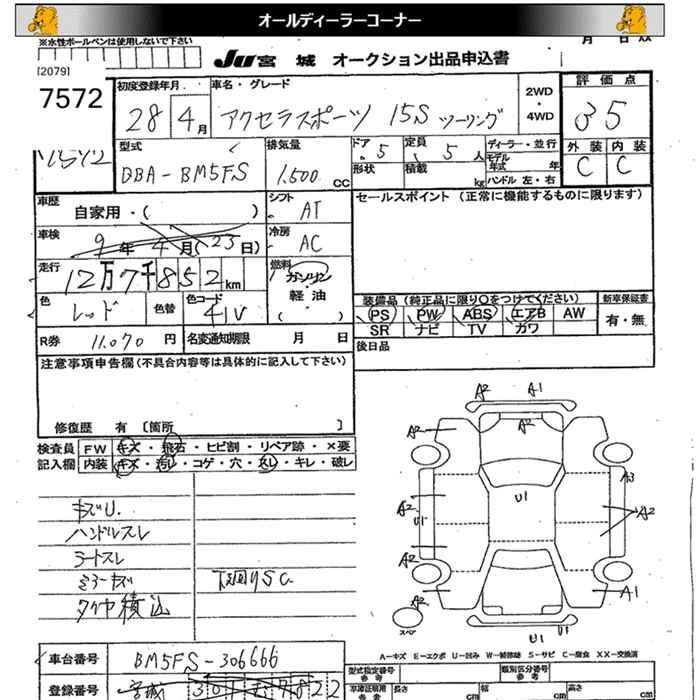 オールディーラーコーナー
※水性ボールペンは使用しないで下さい
月 日 XX
[2079]
JU 宮城 オークション出品申込書
7572
初度登録年月 28 4月
車名・グレード アクセラスポーツ 15S ツーリング
2WD・4WD
評価点 35
型式 DBA-BM5FS
排気量 1.500 cc
ドア 5 形状
定員 5人 積載 kg
ディーラー・並行
モデル年式 年
ハンドル 左・右
外装 C 内装 C
車歴 自家用・( )
シフト AT
セールスポイント (正常に機能するものに限ります)
車検 9年4月(23日)
冷房 AC
走行 12万7千852km
燃料 ガソリン・軽油 ( )
色 レッド 色替 色コード 41V
装備品 (純正品に限り○をつけてください) 新車保証書
PS PW ABS エアB AW 有・無
SR ナビ TV カワ
R券 11.070 円 名変通知期限 月 日
後日品
注意事項申告欄 (不具合内容等は具体的に記入して下さい)
修復歴 有 〔箇所 〕
検査員記入欄
FW キズ・飛石・ヒビ割・リペア跡・×要
内装 キズ・汚レ・コゲ・穴・スレ・キレ・破レ
キズU.
ハンドルスレ
シートスレ
ミラーキズ
下廻りSC
タイヤ積込
A2 A1
A2 A2
U1
A2 U1
A3
A2
A2
A2 A1
スペア
U1 U1
A-キズ E-エクボ U-凹み W-補修跡 S-サビ C-腐食 XX-交換済
車台番号 BM5FS-306666
型式指定番号 参考
類別区分番号 参考
登録番号 宮城
車庫証明用 参考 長さ cm 幅 cm 高さ cm